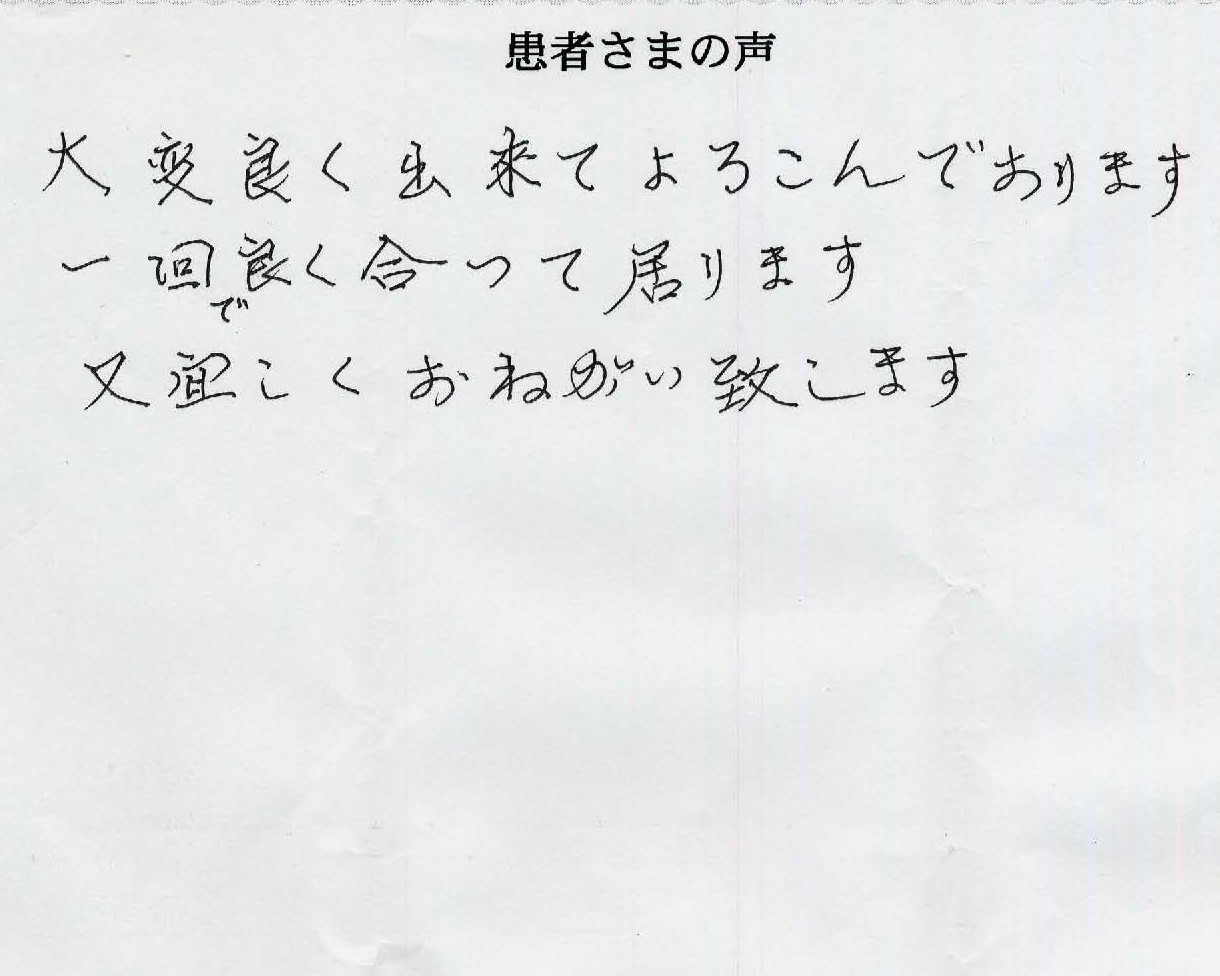 患者さまの声
大変良く出来てよろこんでおります
一回で良く合って居ります
又宜しくおねがい致します